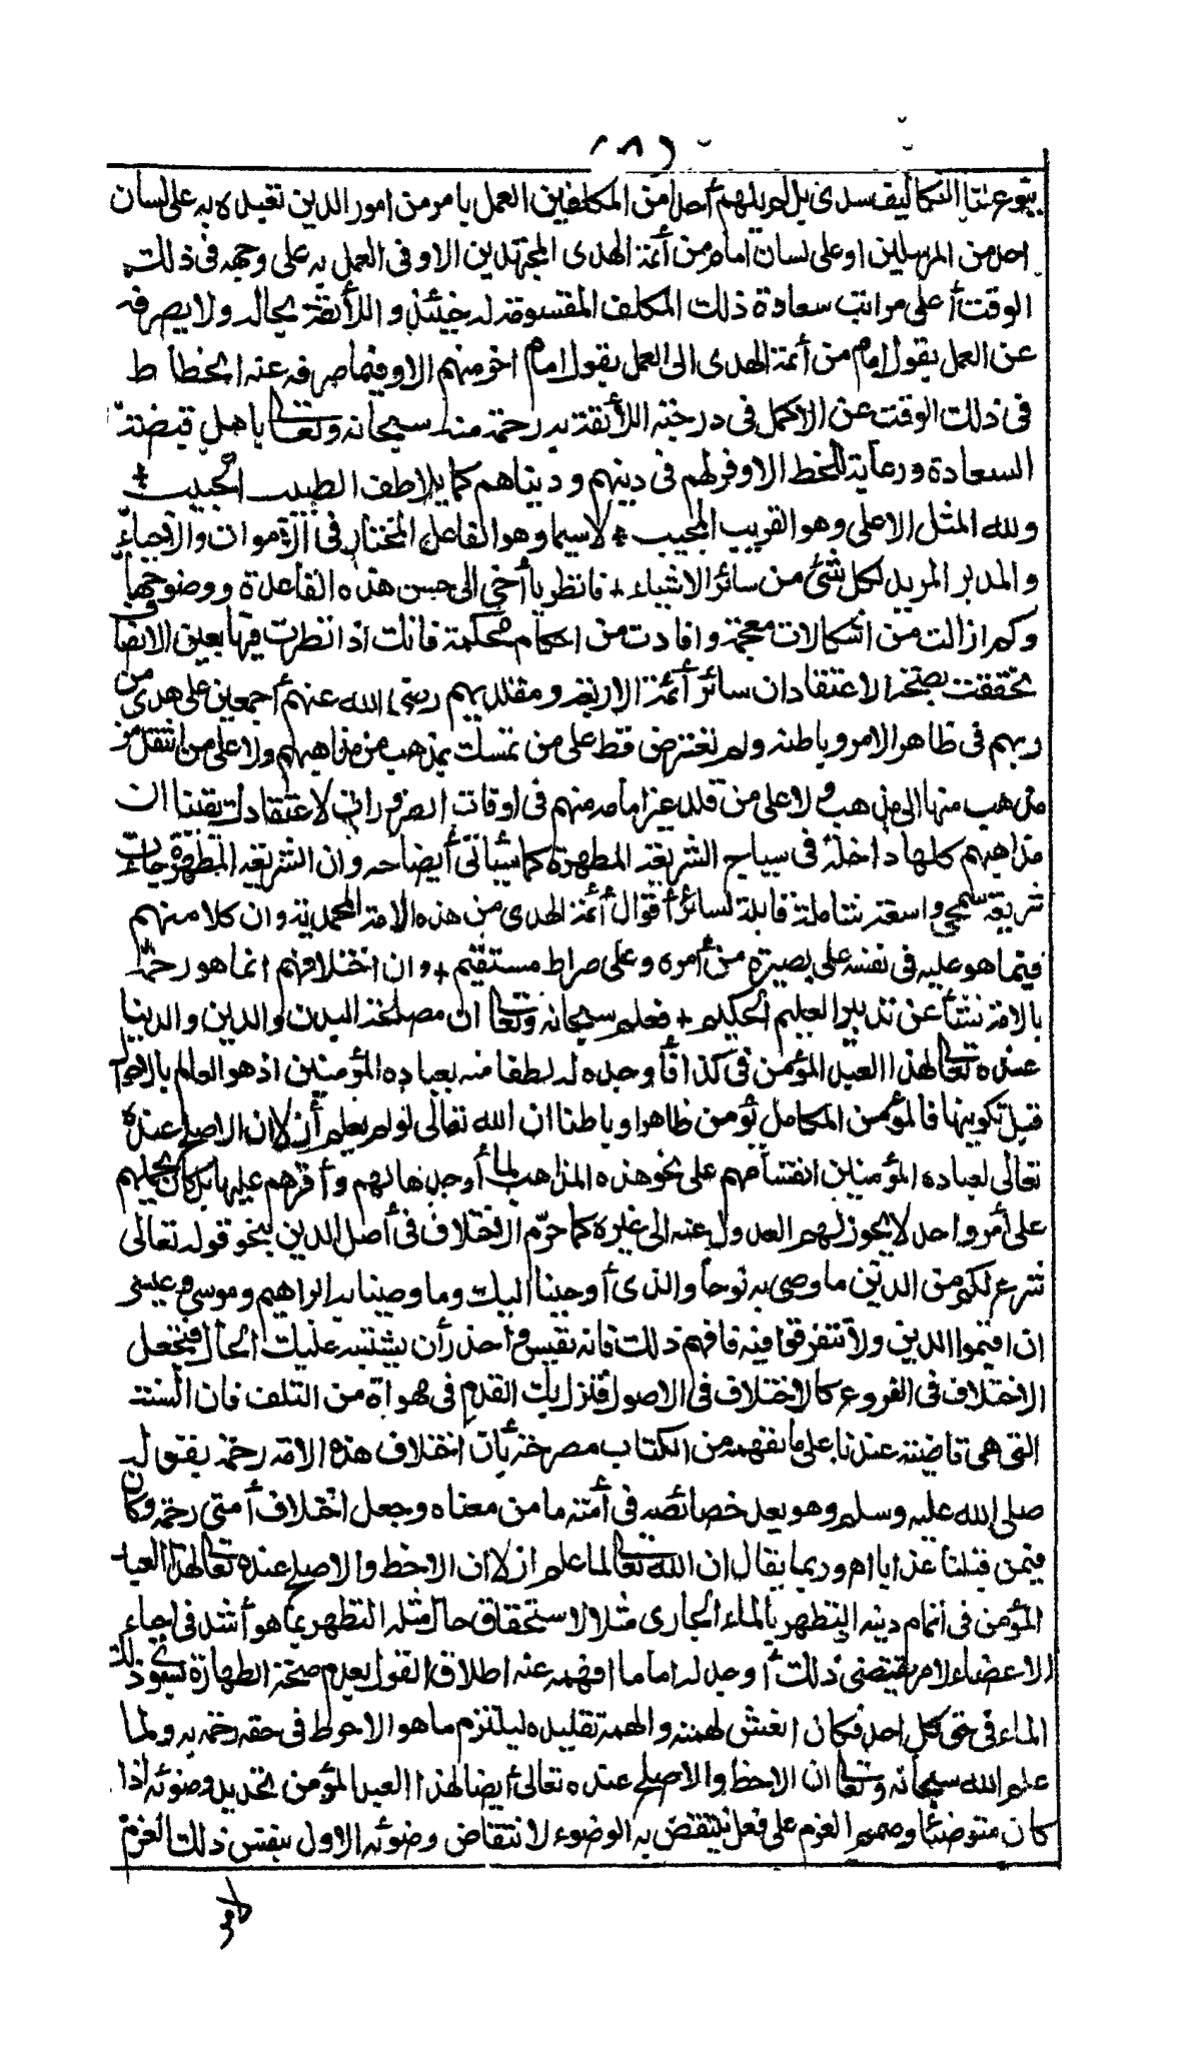 بنوع عبثا التكاليف سدى بل لم يلهم أحدا من المكلفين العمل بامر من امور الدين تعبده به على لسان
احد من المرسلين او على لسان امام من أئمة الهدى المجتهدين الا وفى العمل به على وجهه فى ذلك
الوقت أعلى مراتب سعادة ذلك المكلف المقسومة له حينئذ واللائقة بحاله ولا يصرفه
عن العمل بقول امام من أئمة الهدى الى العمل بقول امام اخر منهم الا وفيما صرفه عنه انحطاط
فى ذلك الوقت عن الاكمل فى درجته اللائقة به رحمة منه سبحانه وتعالى باهل قبضة
السعادة ورعاية للحظ الاوفر لهم فى دينهم ودنياهم كما يلاطف الطبيب الحبيب
ولله المثل الاعلى وهو القريب المجيب لاسيما وهو الفاعل المختار فى الاموات والاحياء
والمدبر المريد لكل شئ من سائر الاشياء فانظر يا أخى الى حسن هذه القاعدة ووضوحها
وكم ازالت من اشكالات معجمة وافادت من احكام محكمة فانك اذا نظرت فيها بعين الانصاف
تحققت بصحة الاعتقاد ان سائر أئمة الاربعة ومقلديهم رضى الله عنهم أجمعين على هدى من
ربهم فى ظاهر الامر وباطنه ولم تعترض قط على من تمسك بمذهب من مذاهبهم ولا على من انتقل من
مذهب منها الى مذهب ولا على من قلد غير امامه منهم فى اوقات الضرورات لاعتقادك يقينا ان
مذاهبهم كلها داخلة فى سياج الشريعة المطهرة كما سيأتى أيضاحه وان الشريعة المطهرة جاءت
شريعة سمحى واسعة شاملة قابلة لسائر أقوال أئمة الهدى من هذه الامة المحمدية وان كلا منهم
فيما هو عليه فى نفسه على بصيرة من أمره وعلى صراط مستقيم وان اختلافهم انما هو رحمة
بالامة نشأ عن تدبير العليم الحكيم فعلم سبحانه وتعالى ان مصلحة البدن والدين والدنيا
عنده تعالى لهذا العبد المؤمن فى كذا فأوجده له لطفا منه بعباده المؤمنين اذ هو العالم بالاحوال
قبل تكوينها فالمؤمن الكامل يؤمن ظاهرا وباطنا ان الله تعالى لو لم يعلم أزلا ان الاصلح عنده
تعالى لعباده المؤمنين انقسامهم على نحو هذه المذاهب لما أوجدها لهم وأقرهم عليها بل كان يحملهم
على أمر واحد لا يجوز لهم العدول عنه الى غيره كما حرّم الاختلاف فى أصل الدين بنحو قوله تعالى
شرع لكم من الدين ما وصى به نوحا والذى أوحينا اليك وما وصينا به ابراهيم وموسى وعيسى
ان اقيموا الدين ولا تتفرقوا فيه فافهم ذلك فانه نفيس واحذر أن يشتبه عليك الحال فتجعل
الاختلاف فى الفروع كالاختلاف فى الاصول فتزل بك القدم فى مهواة من التلف فان السنة
التى هى قاضية عندنا على ما يفهمه من الكتاب مصرحة بأن اختلاف هذه الامة رحمة بقوله
صلى الله عليه وسلم وهو يعد خصائصه فى أمته ما من معناه وجعل اختلاف أمتى رحمة وكان
فيمن قبلنا عذابا اه وربما يقال ان الله تعالى لما علم ازلا ان الاحظ والاصلح عنده تعالى لهذا العبد
المؤمن فى اتمام دينه التطهر بالماء الجارى مثلا لاستحقاق حال مثله التطهر بما هو أشد فى احياء
الاعضاء لامر يقتضى ذلك أوجد له اماما افهمه عنه اطلاق القول بعدم صحة الطهارة بسوى ذلك
الماء فى حق كل احد فكان انعش لهمته والهمه تقليده ليلتزم ما هو الاحوط فى حقه رحمة به ولما
علم الله سبحانه وتعالى ان الاحظ والاصلح عنده تعالى أيضا لهذا العبد المؤمن تجديد وضوئه اذا
كان متوضئا وصمم العزم على فعل ينتقض به الوضوء لانتقاض وضوئه الاول بنفس ذلك العزم